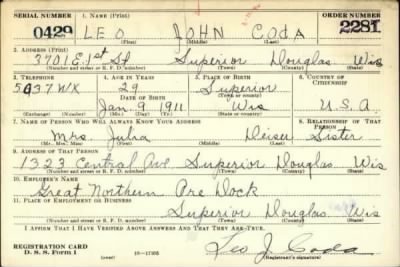 SERIAL NUMBER 1. NAME (Print) ORDER NUMBER
0429 LEO JOHN CODA 2281
(First) (Middle) (Last)
2. ADDRESS (Print)
3701 E. 1st St Superior Douglas Wis
(Number and street or R. F. D. number) (Town) (County) (State)
3. TELEPHONE 4. AGE IN YEARS 5. PLACE OF BIRTH 6. COUNTRY OF CITIZENSHIP
29 Superior
DATE OF BIRTH (Town or county)
Jan 9 1911 Wis U.S.A.
(Exchange) (Number) (Mo.) (Day) (Yr.) (State or country)
7. NAME OF PERSON WHO WILL ALWAYS KNOW YOUR ADDRESS 8. RELATIONSHIP OF THAT PERSON
Mrs. Julia Sister
(Mr., Mrs., Miss) (First) (Middle) (Last)
9. ADDRESS OF THAT PERSON
1323 Central Ave Superior Douglas Wis
(Number and street or R. F. D. number) (Town) (County) (State)
10. EMPLOYER'S NAME
Great Northern Ore Dock
11. PLACE OF EMPLOYMENT OR BUSINESS
Superior Douglas Wis
(Number and street or R. F. D. number) (Town) (County) (State)
I AFFIRM THAT I HAVE VERIFIED ABOVE ANSWERS AND THAT THEY ARE TRUE.
REGISTRATION CARD
D. S. S. Form 1 (over) 16—17105 Leo J. Coda
(Registrant's signature)